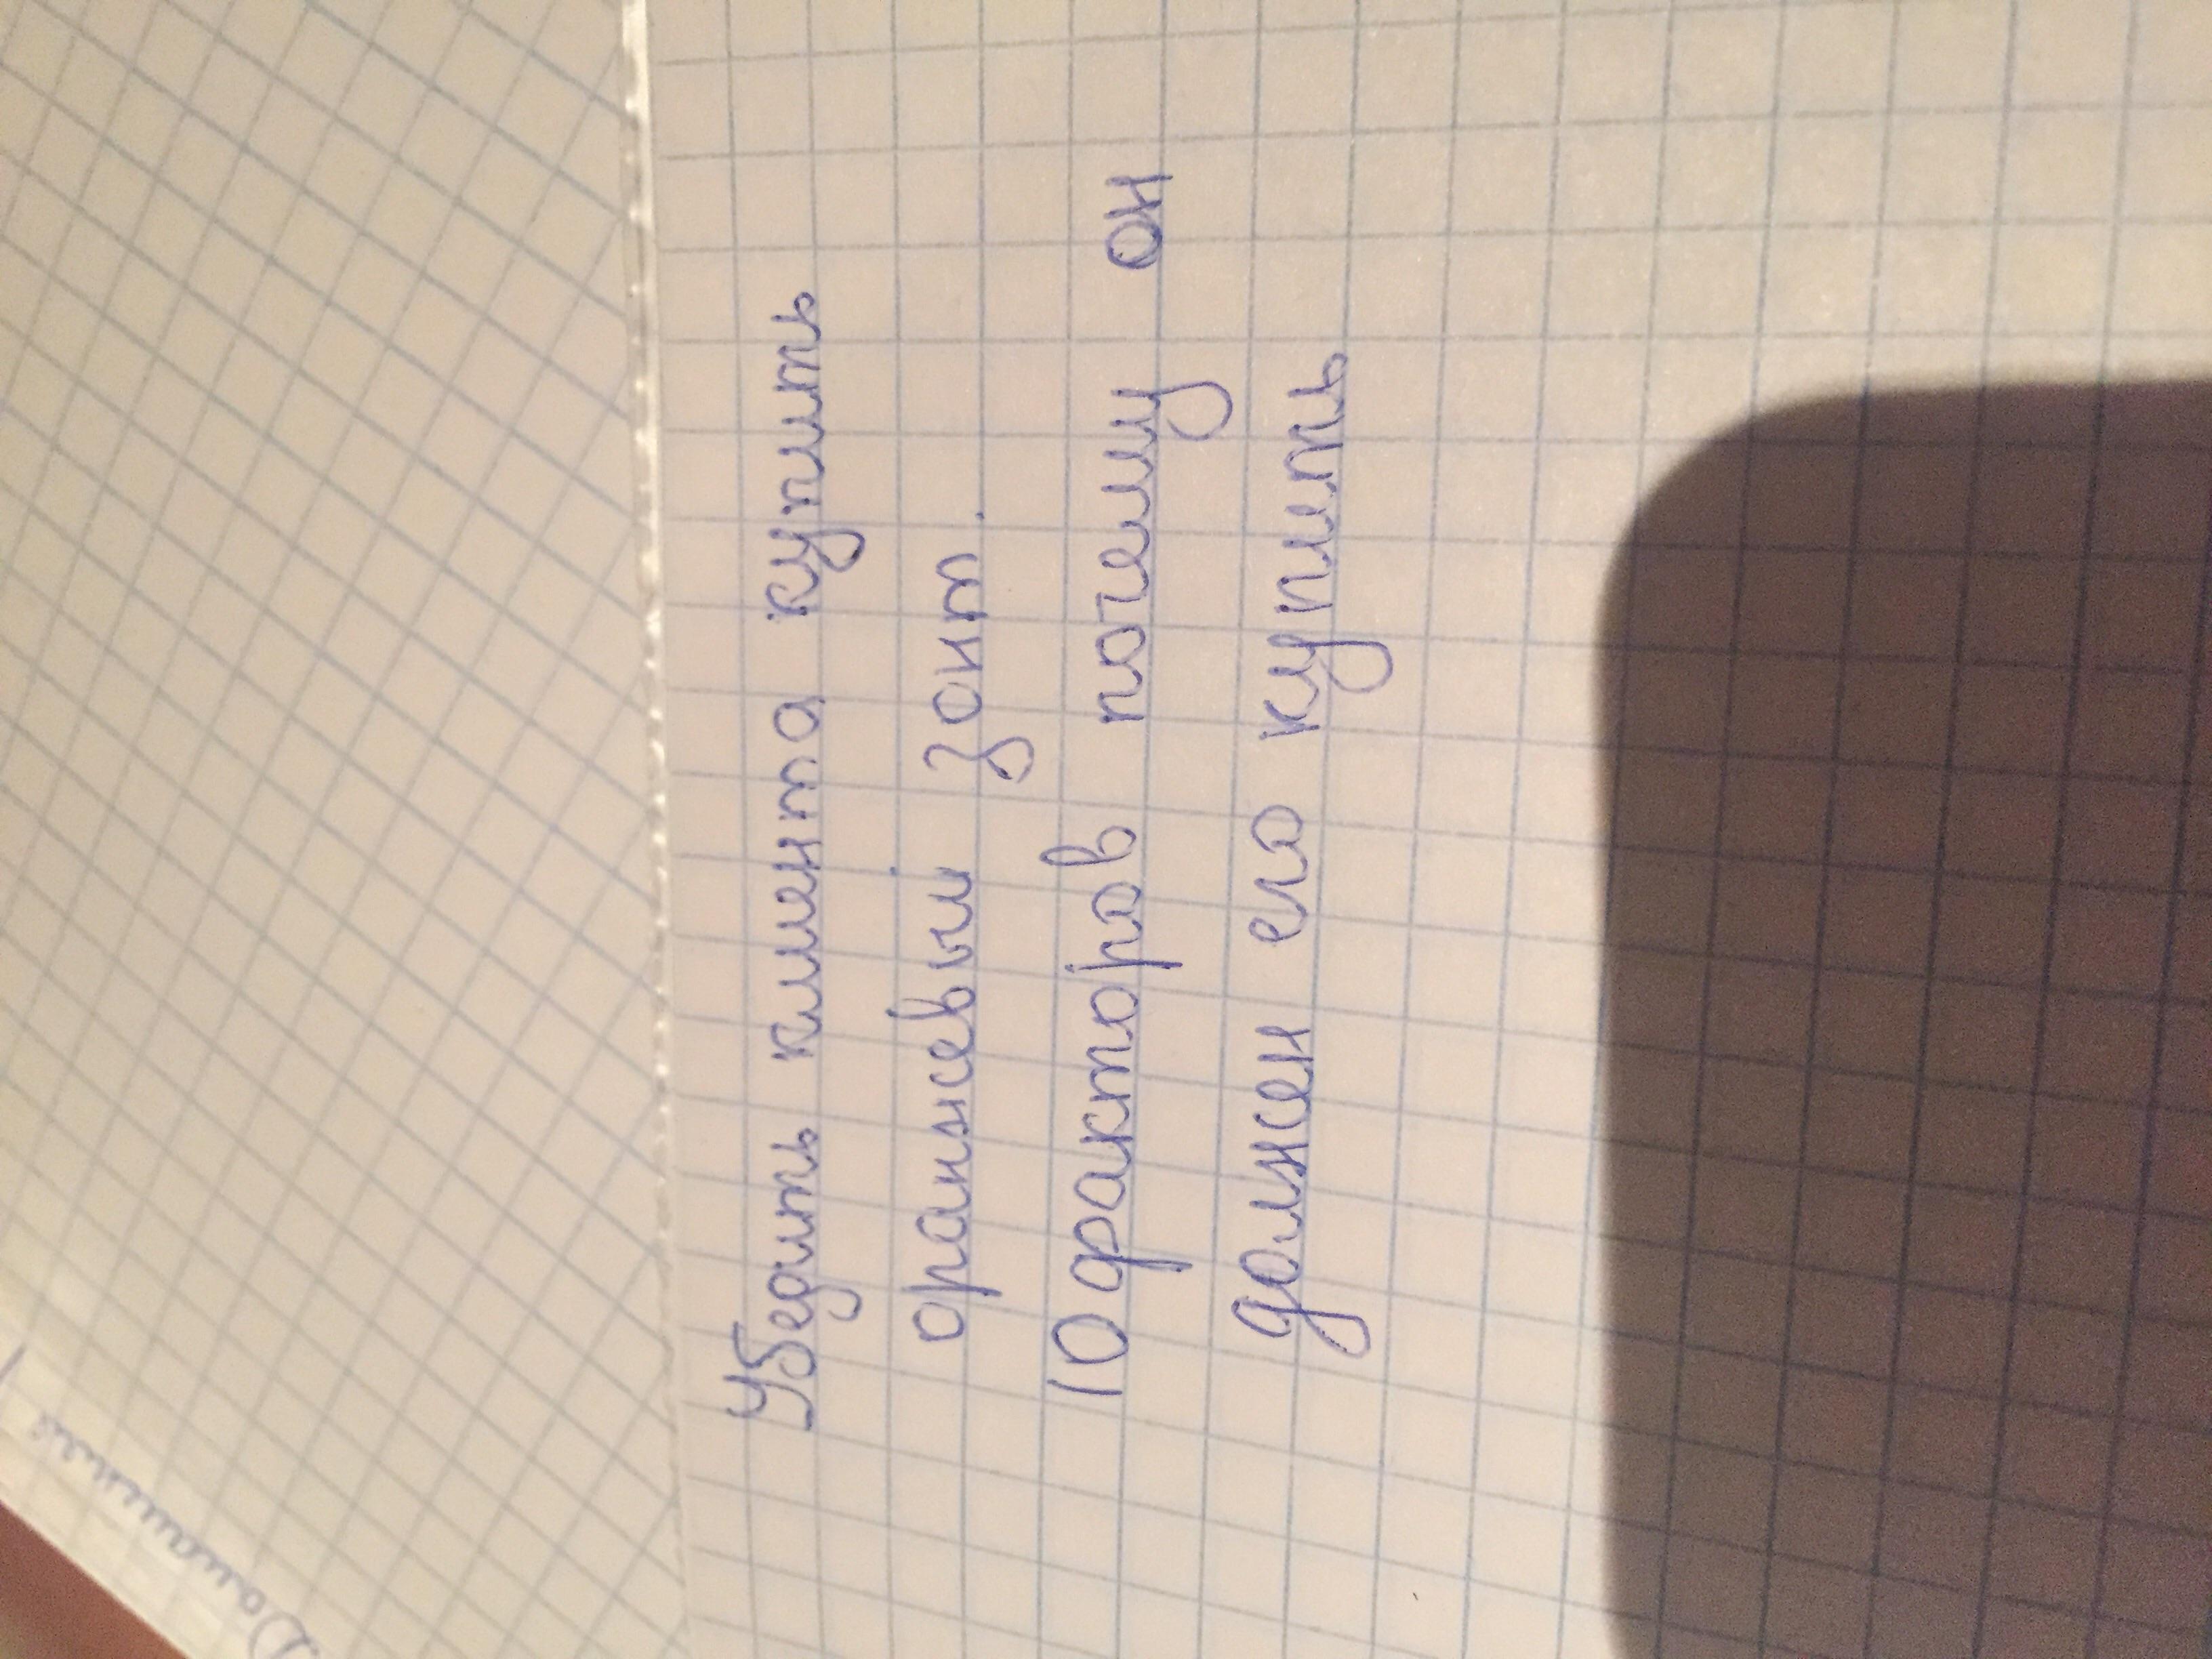 Убедить клиента купить
оранжевый зонт.
10 факторов почему он
должен его купить